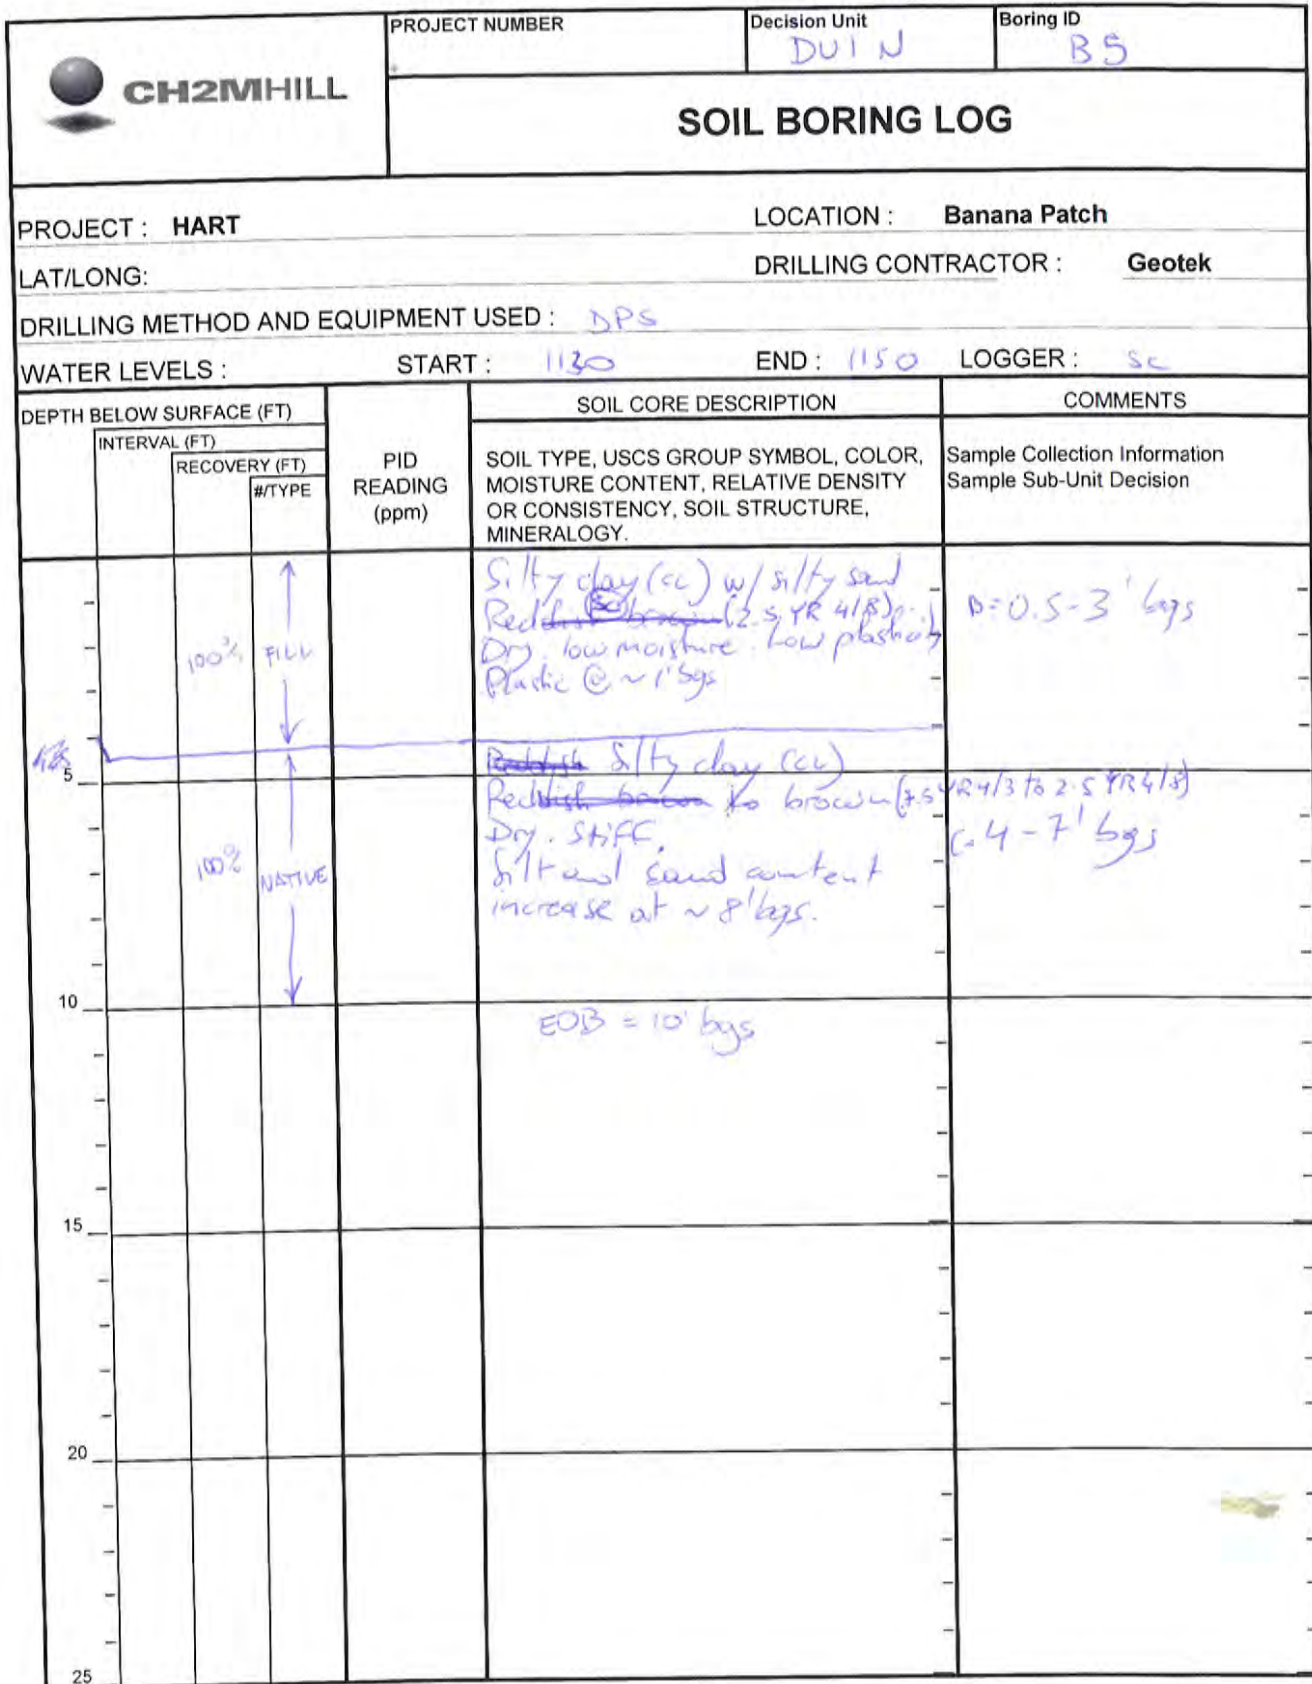 CH2MHILL
PROJECT NUMBER
Decision Unit
DU1 N
Boring ID
B5
SOIL BORING LOG
PROJECT : HART
LOCATION : Banana Patch
LAT/LONG:
DRILLING CONTRACTOR : Geotek
DRILLING METHOD AND EQUIPMENT USED : DPS
WATER LEVELS : START : 1130 END : 1150 LOGGER : SC
DEPTH BELOW SURFACE (FT)
INTERVAL (FT)
RECOVERY (FT)
#/TYPE
PID
READING
(ppm)
SOIL CORE DESCRIPTION
SOIL TYPE, USCS GROUP SYMBOL, COLOR,
MOISTURE CONTENT, RELATIVE DENSITY
OR CONSISTENCY, SOIL STRUCTURE,
MINERALOGY.
COMMENTS
Sample Collection Information
Sample Sub-Unit Decision
100% FILL
Silty clay (CL) w/ silty sand
Reddish brown (2.5 YR 4/8)
Dry. low moisture. Low plasticity
Plastic @ ~1' bgs
B=0.5-3' bgs
5
100% NATIVE
Reddish Silty clay (CL)
Reddish brown to brown (7.5 YR 4/3 to 2.5 YR 4/8)
Dry. Stiff.
Silt and sand content
increase at ~ 8' bgs.
C=4-7' bgs
10
EOB = 10' bgs
15
20
25